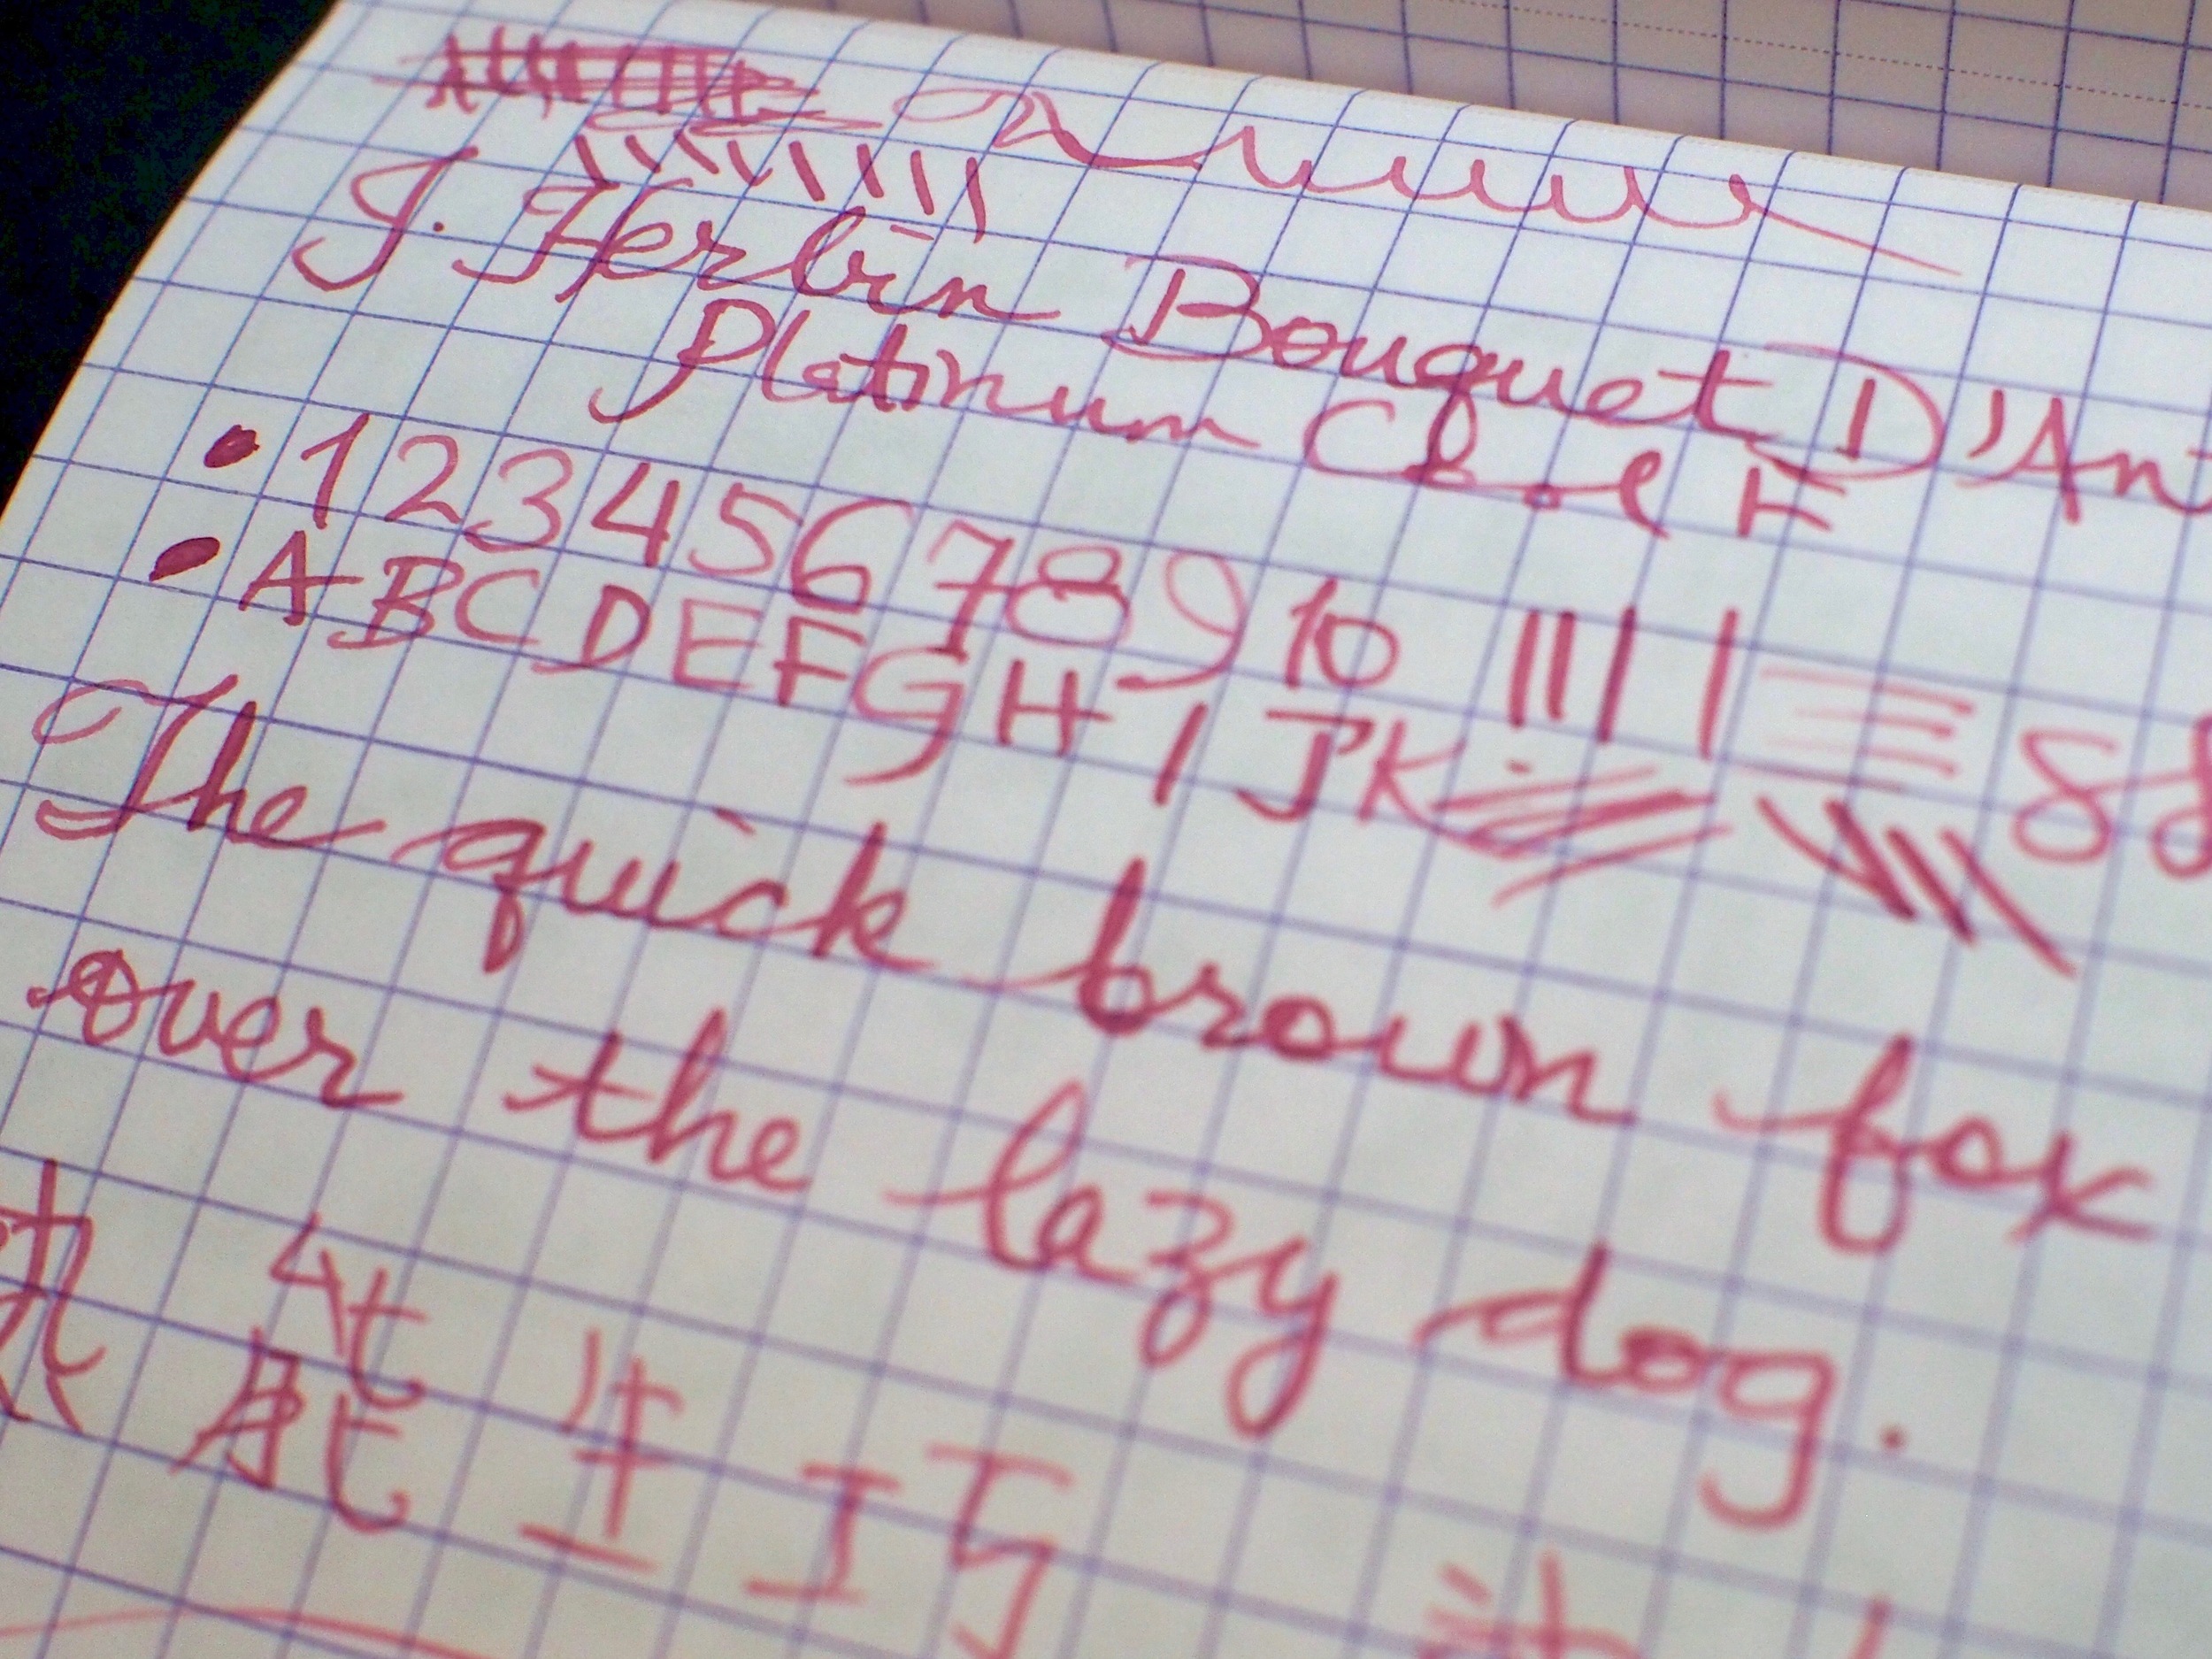 J. Herbin Bouquet D'An
Platinum Cool F
• 1 2 3 4 5 6 7 8 9 10
• A B C D E F G H I J K
The quick brown fox
over the lazy dog.